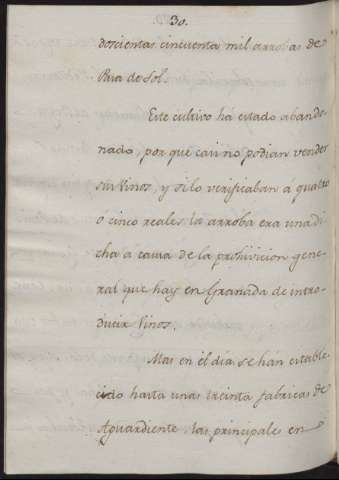 30.
doscientas cincuenta mil arrobas de
Para de Sol.
Este cultivo há estado abando-
nado, por que casi no podian vender
sus Vinos, y si lo verificaban á quatro
o cinco reales la arroba era una di-
cha á causa de la prohivicion gene-
ral que hay en Granada de intro-
ducir Vinos.
Mas en el dia se hán estable-
cido hasta unas treinta fabricas de
Aguardiente, las principales en